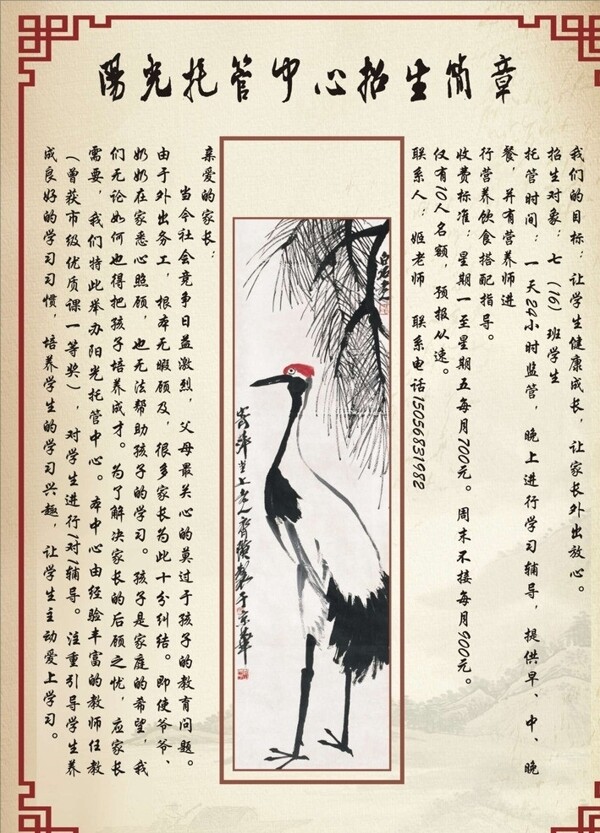 陽光托管中心招生简章
我们的目标：让学生健康成长，让家长外出放心。
招生对象：七（16）班学生
托管时间：一天24小时监管，晚上进行学习辅导，提供早、中、晚
餐，并有营养师进
行营养饮食搭配指导。
收费标准：星期一至星期五每月700元。周末不接每月900元。
仅有10人名额，预报从速。
联系人：姬老师 联系电话15056831982
亲爱的家长：
当今社会竞事日益激烈，父母最关心的莫过于孩子的教育问题。
由于外出务工，根本无暇顾及，很多家长为此十分纠结。即使爷爷、
奶奶在家悉心照顾，也无法帮助孩子的学习。孩子是家庭的希望，我
们无论如何也得把孩子培养成才。为了解决家长的后顾之忧，应家长
需要，我们特此举办阳光托管中心。本中心由经验丰富的教师任教
（曾获市级优质课一等奖），对学生进行1对1辅导。注重引导学生养
成良好的学习习惯，培养学生的学习兴趣，让学生主动爱上学习。